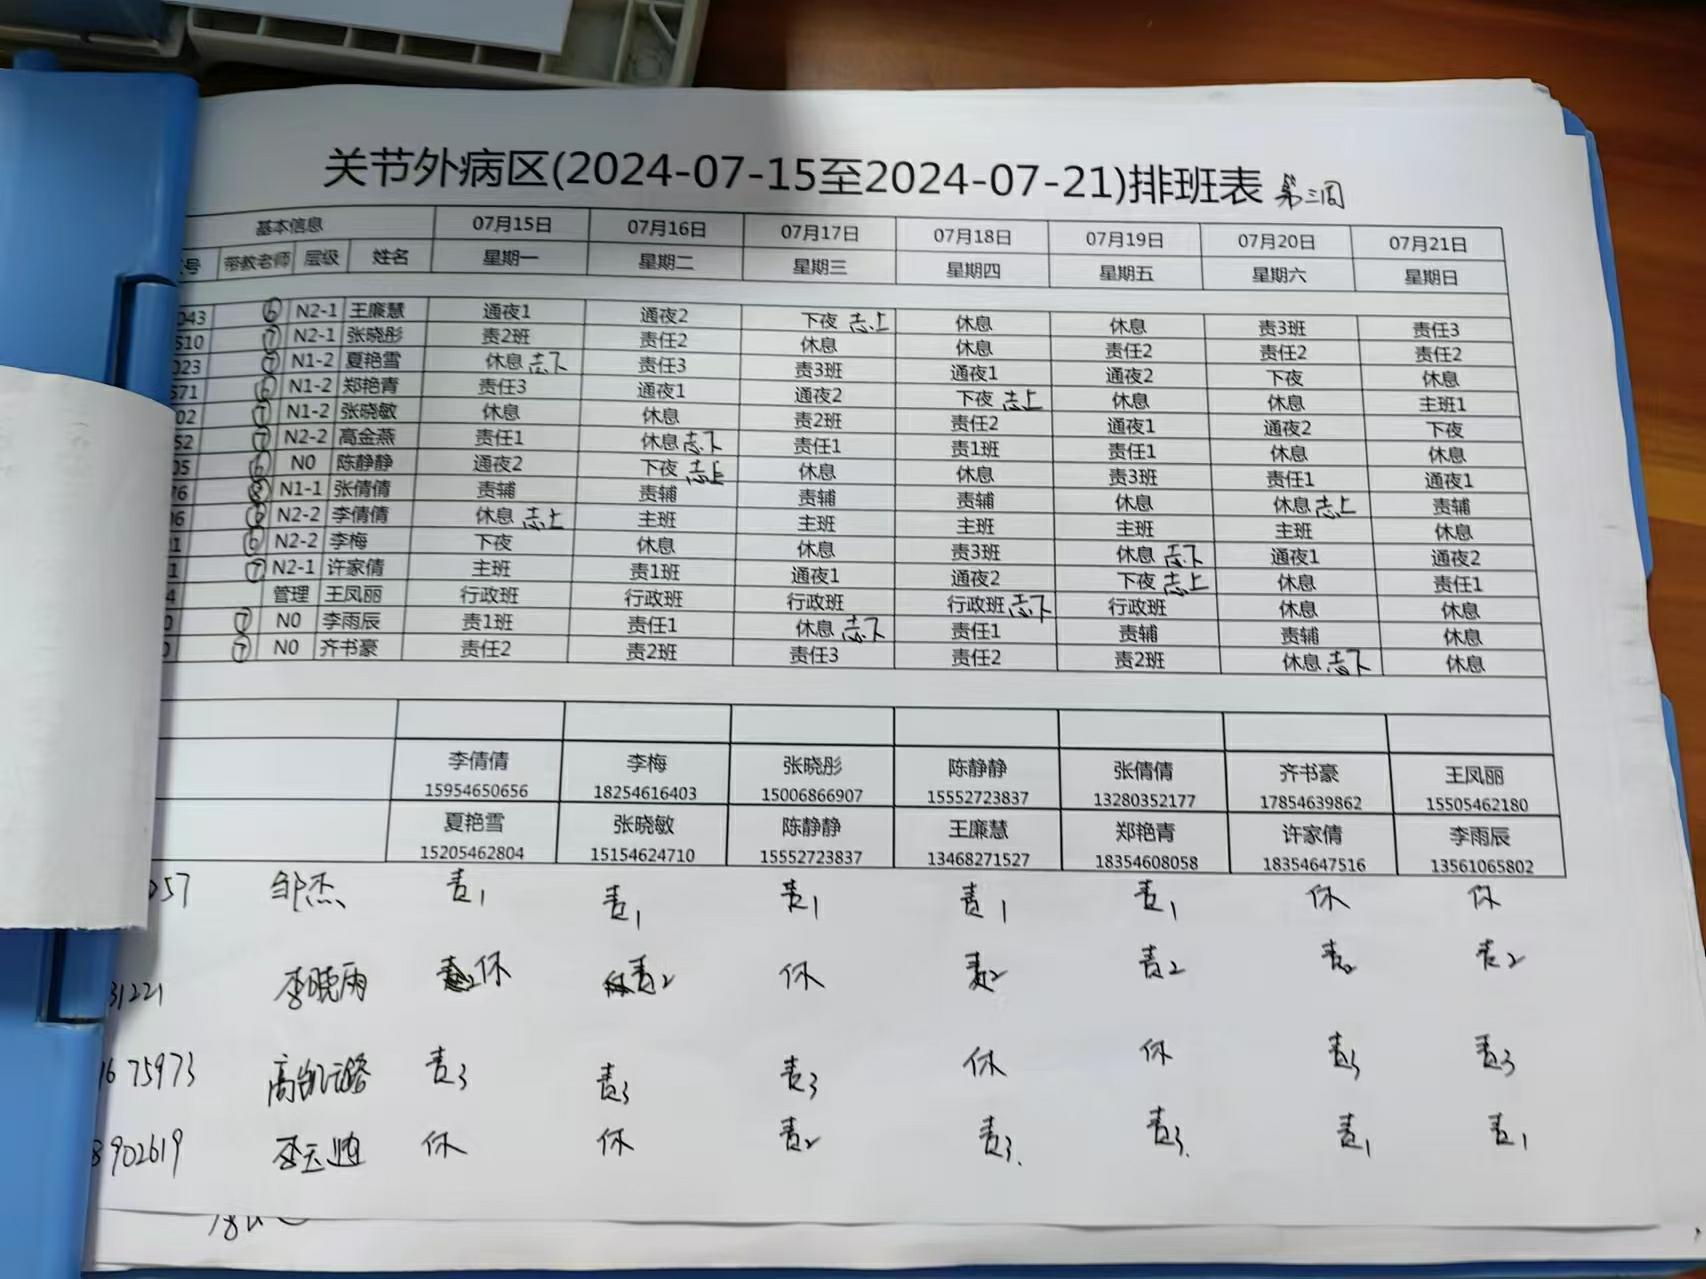 关节外病区(2024-07-15至2024-07-21)排班表 第三周
基本信息 07月15日 07月16日 07月17日 07月18日 07月19日 07月20日 07月21日
号 带教老师 层级 姓名 星期一 星期二 星期三 星期四 星期五 星期六 星期日
043 ⑥ N2-1 王廉慧 通夜1 通夜2 下夜 志上 休息 休息 责3班 责任3
510 ⑦ N2-1 张晓彤 责2班 责任2 休息 休息 责任2 责任2 责任2
023 ⑦ N1-2 夏艳雪 休息 志下 责任3 责3班 通夜1 通夜2 下夜 休息
571 ⑥ N1-2 郑艳青 责任3 通夜1 通夜2 下夜 志上 休息 休息 主班1
02 ⑦ N1-2 张晓敏 休息 休息 责2班 责任2 通夜1 通夜2 下夜
52 ⑦ N2-2 高金燕 责任1 休息 志下 责任1 责1班 责任1 休息 休息
05 ⑥ N0 陈静静 通夜2 下夜 志上 休息 休息 责3班 责任1 通夜1
76 ⑧ N1-1 张倩倩 责辅 责辅 责辅 责辅 休息 休息 志上 责辅
06 ⑥ N2-2 李倩倩 休息 志上 主班 主班 主班 主班 主班 休息
1 ⑥ N2-2 李梅 下夜 休息 休息 责3班 休息 志下 通夜1 通夜2
1 ⑦ N2-1 许家倩 主班 责1班 通夜1 通夜2 下夜 志上 休息 责任1
4 管理 王凤丽 行政班 行政班 行政班 行政班 志下 行政班 休息 休息
0 ⑦ N0 李雨辰 责1班 责任1 休息 志下 责任1 责辅 责辅 休息
0 ⑦ N0 齐书豪 责任2 责2班 责任3 责任2 责2班 休息 志下 休息
李倩倩 李梅 张晓彤 陈静静 张倩倩 齐书豪 王凤丽
15954650656 18254616403 15006866907 15552723837 13280352177 17854639862 15505462180
夏艳雪 张晓敏 陈静静 王廉慧 郑艳青 许家倩 李雨辰
15205462804 15154624710 15552723837 13468271527 18354608058 18354647516 13561065802
257 邹杰 责1 责1 责1 责1 责1 休 休
31221 李晓雨 休 责2 休 责2 责2 责2 责2
16 75973 高凯璐 责3 责3 责3 休 休 责3 责3
8902619 休 休 责2 责3. 责3. 责1 责1